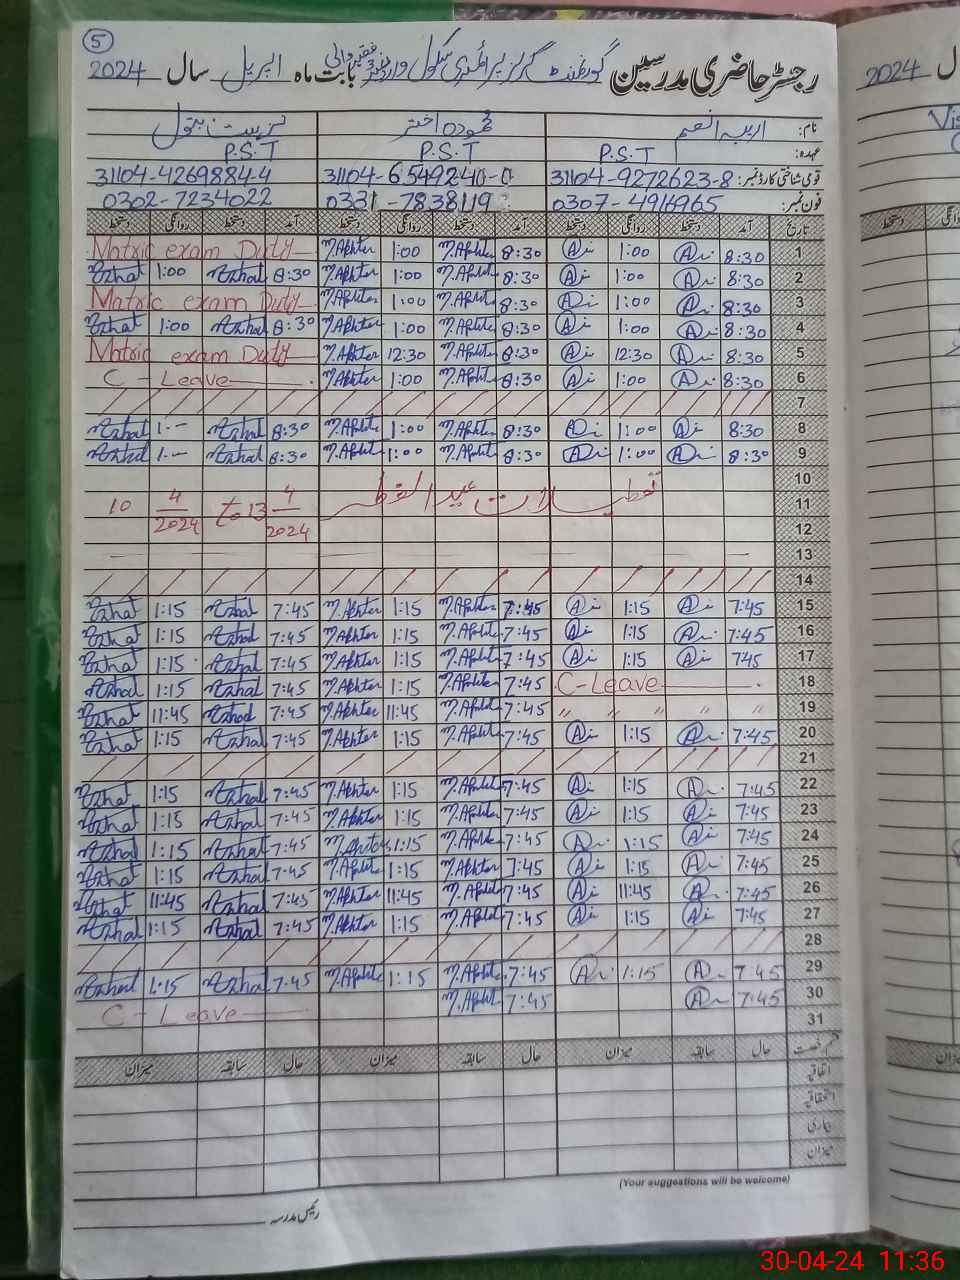 5
رجسٹر حاضری مدرسین گورنمنٹ گرلز پرائمری سکول وارڈ نمبر 3 فقیر والی بابت ماہ اپریل سال 2024
نام: اریبہ انعم محمودہ اختر نزہت بتول
عہدہ: P.S.T P.S.T P.S.T
قومی شناختی کارڈ نمبر: 31104-9272623-8 31104-6549240-0 31104-4269884-4
فون نمبر: 0307-4916965 0331-7838119 0302-7234022
تاریخ آمد دستخط روانگی دستخط آمد دستخط روانگی دستخط آمد دستخط روانگی دستخط
1 8:30 A 1:00 A 8:30 M.Akhter 1:00 M.Akhter Matric exam Duty
2 8:30 A 1:00 A 8:30 M.Akhter 1:00 M.Akhter 8:30 Nzhat 1:00 Nzhat
3 8:30 A 1:00 A 8:30 M.Akhter 1:00 M.Akhter Matric exam Duty
4 8:30 A 1:00 A 8:30 M.Akhter 1:00 M.Akhter 8:30 Nzhat 1:00 Nzhat
5 8:30 A 12:30 A 8:30 M.Akhter 12:30 M.Akhter Matric exam Duty
6 8:30 A 1:00 A 8:30 M.Akhter 1:00 M.Akhter C-Leave
7
8 8:30 A 1:00 A 8:30 M.Akhter 1:00 M.Akhter 8:30 Nzhat 1:-- Nzhat
9 8:30 A 1:00 A 8:30 M.Akhter 1:00 M.Akhter 8:30 Nzhat 1:-- Nzhat
10
11 تعطیلات عید الفطر 10 4/2024 to 13 4/2024
12
13
14
15 7:45 A 1:15 A 7:45 M.Akhter 1:15 M.Akhter 7:45 Nzhat 1:15 Nzhat
16 7:45 A 1:15 A 7:45 M.Akhter 1:15 M.Akhter 7:45 Nzhat 1:15 Nzhat
17 745 A 1:15 A 7:45 M.Akhter 1:15 M.Akhter 7:45 Nzhat 1:15 Nzhat
18 C-Leave 7:45 M.Akhter 1:15 M.Akhter 7:45 Nzhat 1:15 Nzhat
19 〃 〃 〃 〃 〃 7:45 M.Akhter 11:45 M.Akhter 7:45 Nzhat 11:45 Nzhat
20 7:45 A 1:15 A 7:45 M.Akhter 1:15 M.Akhter 7:45 Nzhat 1:15 Nzhat
21
22 7:45 A 1:15 A 7:45 M.Akhter 1:15 M.Akhter 7:45 Nzhat 1:15 Nzhat
23 7:45 A 1:15 A 7:45 M.Akhter 1:15 M.Akhter 7:45 Nzhat 1:15 Nzhat
24 7:45 A 1:15 A 7:45 M.Akhter 1:15 M.Akhter 7:45 Nzhat 1:15 Nzhat
25 7:45 A 1:15 A 7:45 M.Akhter 1:15 M.Akhter 7:45 Nzhat 1:15 Nzhat
26 7:45 A 11:45 A 7:45 M.Akhter 11:45 M.Akhter 7:45 Nzhat 11:45 Nzhat
27 7:45 A 1:15 A 7:45 M.Akhter 1:15 M.Akhter 7:45 Nzhat 1:15 Nzhat
28
29 7:45 A 1:15 A 7:45 M.Akhter 1:15 M.Akhter 7:45 Nzhat 1:15 Nzhat
30 7:45 A 7:45 M.Akhter C-Leave
31
قسم رخصت حال سابقہ میزان حال سابقہ میزان حال سابقہ میزان
اتفاقیہ
استحقاقیہ
بیماری
میزان
(Your suggestions will be welcome)
رئیس مدرسہ
ل 2024
دستخط
30-04-24 11:36